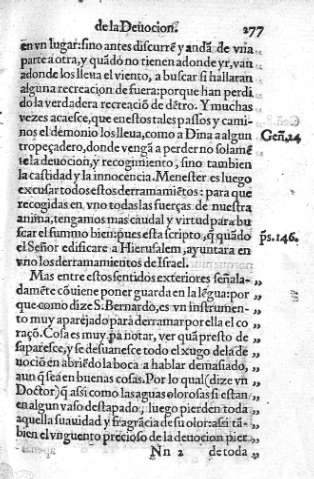 de la Deuocion. 277
en vn lugar: sino antes discurrẽ y andã de vna
parte a otra, y quãdo no tienen adonde yr, van
adonde los lleua el viento, a buscar si hallaran
alguna recreacion de fuera: porque han perdi
do la verdadera recreaciõ de dẽtro. Y muchas
vezes acaesce, que en estos tales passos y cami-
nos el demonio los lleua, como a Dina a algun Geñ. 24
tropeçadero, donde vengã a perder no solamẽ
te la deuocion, y recogimiento, sino tambien
la castidad y la innocencia. Menester es luego
excusar todos estos derramamiẽtos: para que
recogidas en vno todas las fuerças de nuestra
anima, tengamos mas caudal y virtud para bu
scar el summo bien: pues esta scripto, q̃ quãdo p̃s. 146.
el Señor edificare a Hierusalem, ayuntara en
vno los derramamientos de Israel.
Mas entre estos sentidos exteriores señala- „
damẽte cõuiene poner guarda en la lẽgua: por „
que como dize S. Bernardo, es vn instrumen- „
to muy aparejado para derramar por ella el co „
raçõ. Cosa es muy pa notar, ver quã presto de „
saparesce, y se desuanesce todo el xugo de la de „
uociõ en abriẽdo la boca a hablar demasiado, „
aun q̃ sea en buenas cosas. Por lo qual (dize vn „
Doctor) q̃ assi como las aguas olorosas si estan „
en algun vaso destapado, luego pierden toda „
aquella suauidad y fragãcia de su olor: assi tã- „
bien el vnguento precioso de la deuocion pier „
Nn 2 de toda „